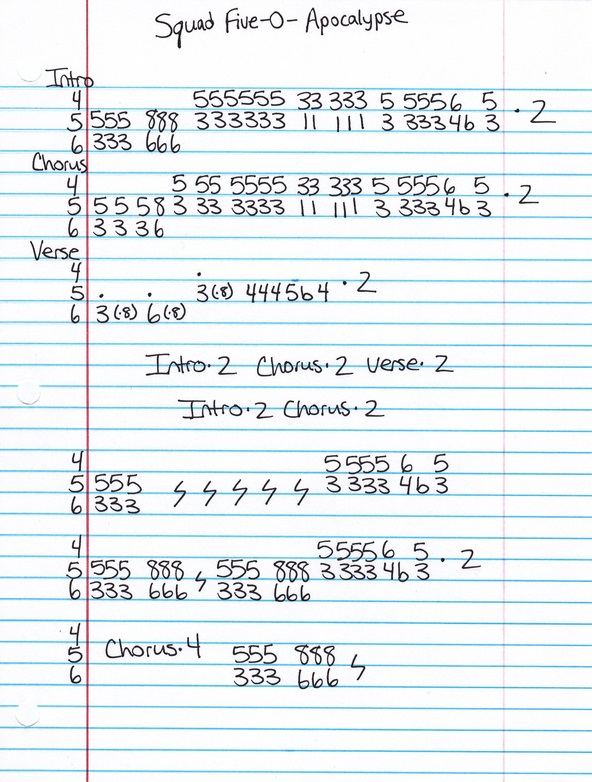 Squad Five-O- Apocalypse
Intro
4 555555 33 333 5 5556 5
5 555 888 333333 11 111 3 333 4b 3 · 2
6 333 666
Chorus
4 5 55 5555 33 333 5 5556 5
5 5 5 5 8 3 33 3333 11 111 3 333 4b 3 · 2
6 3 3 3 6
Verse
4
5 3(·8) 4445b4 · 2
6 3(·8) 6(·8)
Intro·2 Chorus·2 Verse·2
Intro·2 Chorus·2
4 5 555 6 5
5 555 3 333 4b 3
6 333
4 55556 5
5 555 888 555 888 3 333 4b 3 · 2
6 333 666 333 666
4
5 Chorus·4 555 888
6 333 666